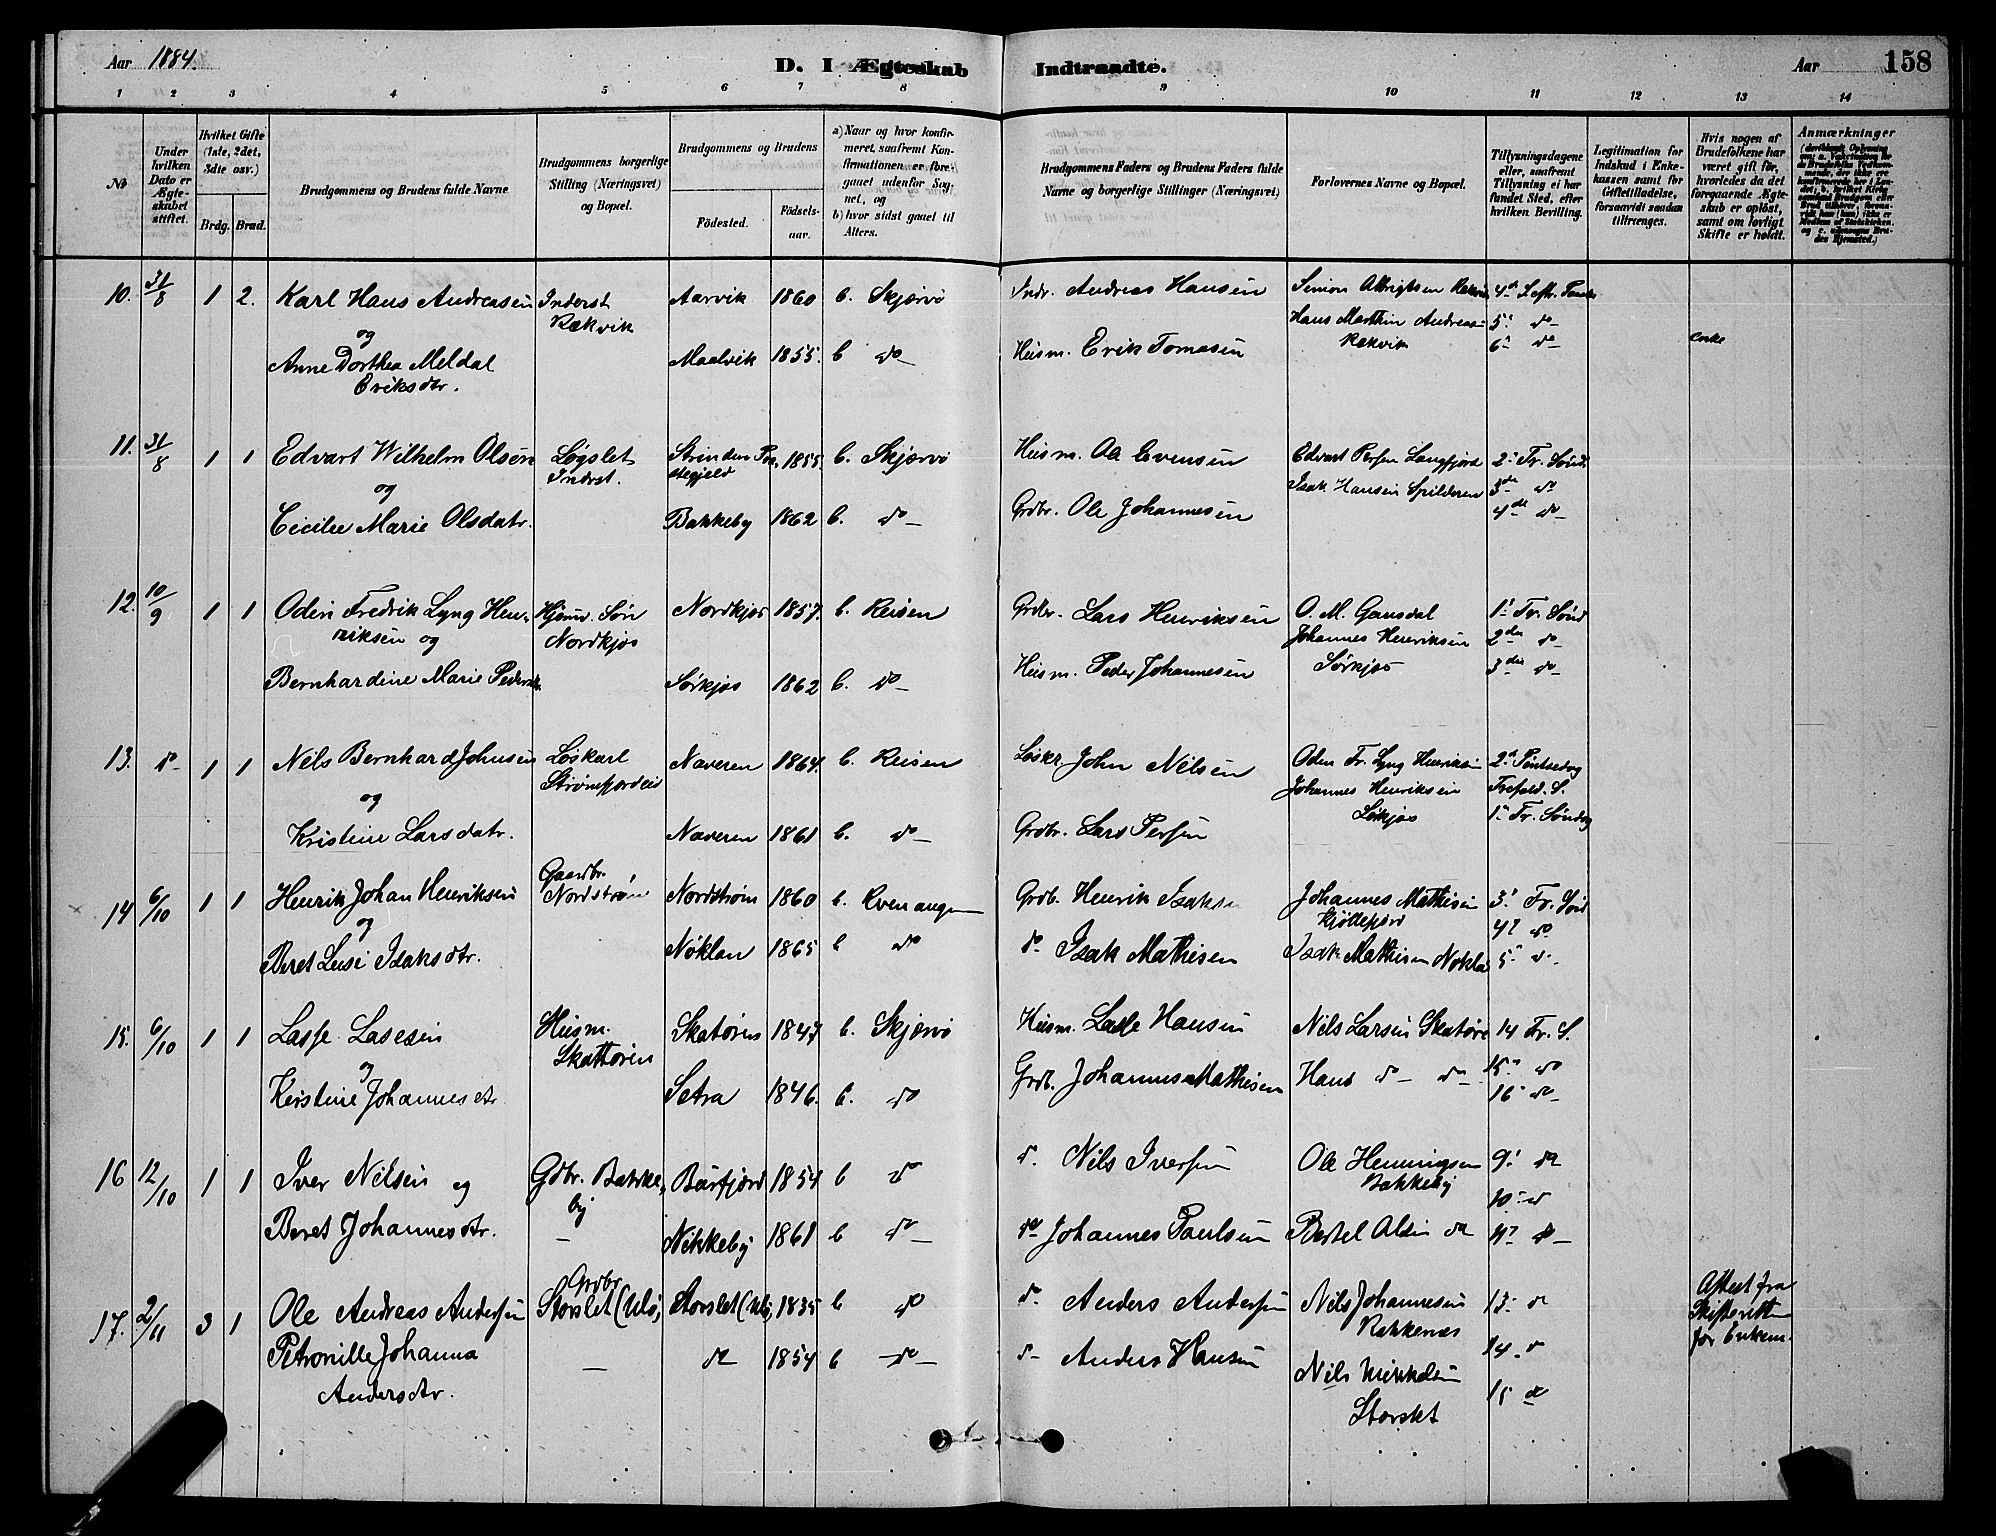 Aar 1884.
D. I Ægteskab Indtraadte.
Aar
158
1 2 3 4 5 6 7 8 9 10 11 12 13 14
No
Under hvilken Dato er Ægteskabet stiftet.
Hvilket Gifte (1ste, 2det, 3die osv.)
Brdg. Brud.
Brudgommens og Brudens fulde Navne
Brudgommens borgerlige Stilling (Næringsvei) og Bopæl.
Brudgommens og Brudens
Födested.
Födselsaar.
a) Naar og hvor konfirmeret, saafremt Konfirmationen er foregaaet udenfor Sognet, og
b) hvor sidst gaaet til Alters.
Brudgommens Faders og Brudens Faders fulde Navne og borgerlige Stillinger (Næringsvei)
Forlovernes Navne og Bopæl.
Tillysningsdagene eller, saafremt Tillysning ei har fundet Sted, efter hvilken Bevilling.
Legitimation for Indskud i Enkekassen samt for Giftetilladelse, forsaavidt saadan tiltrænges.
Hvis nogen af Brudefolkene har været gift för, hvorledes da det foregaaende Ægteskab er oplöst, samt om lovligt Skifte er holdt.
Anmærkninger
10. 31/8 1 2. Karl Hans Andreasen Inderst Aarvik 1860 b. Skjærvö Indr. Andreas Hansen Simon Albrigtsen 4de
og Rækvik Hans Marthin Andreas 5: do
Rækvik 6: do
Anne Dorthea Meldal Maalvik 1855. b do Husm. Erik Tomasen Enke
Eriksdtr.
11. 31/8 1 1 Edvart Wilhelm Olsen Løgslet Strinden 1855. b. Skjærvö Husm. Ole Evensen Edvart Persen Langfjord 2: Fr. Sönd.
og Inderst. Isak Hansen Spilderen 3die do
Cicilie Marie Olsdatr. Bakkeby 1862 b. do Grdbr. Ole Johannesen 4de do
12. 10/9 1 1 Odin Fredrik Lyng Hen- Hjemv. Søn Nordkjos 1857. b. Reisen Grdbr. Lars Henriksen O. M. Gansdal 1: Fr. Sönd
riksen og Nordkjos Johannes Henriksen 2den do
Sørkjos 3die do
Bernhardine Marie Pedersdtr. Sørkjos 1862 b. do Husm. Peder Johannesen
13. do 1 1 Nils Bernhard Johnsen Løskarl Naveren 1864. b. Reisen Løskr John Nilsen Oden Fr. Lyng Henriksen 2d Pintsedag
og Strømfjordeid Johannes Henriksen Trefold. S.
Sørkjos 1: Fr. Søndag
Kristine Larsdatr. Naveren 1861 b. do Grdbr. Lars Persen
14 6/10 1 1 Henrik Johan Henriksen Gaardbr. Nordstrøm Nordstrøm 1860 b. Kvenangen Grdb. Henrik Isaksen Johannes Mathisen 3: Fr. Sönd
og Kjøllefjord 4: do
Beret Lusi Isaksdtr. Nøklan 1865 b do do Isak Mathisen Isak Mathisen Nøklan 5: do
15. 6/10 1 1 Lasse Lasesen Husm. Skatøren 1847 b. Skjærvö Husm. Lasse Hansen Nils Larsen Skatøre 14 Fr. S.
og Skattøren
Kirstine Johannesdtr Setra 1846. b. do Grdb. Johannes Mathisen Hans do do 15: do
16 do
16 12/10 1 1 Iver Nilsen og Gdbr. Bakke- Burfjord 1854 b do do Nils Iversen Ole Henningsen 9: do
by Bakkeby 10: do
Beret Johannesdtr. Nikkeby 1861 b do do Johannes Paulsen Bertel Olsen do 11: do
17. 2/11 3 1 Ole Andreas Andersen Grdbr Storslet (Ulö) Storslet (Ulö) 1835 b do do Anders Andersen Nils Johannesen 13: do Attest fra
Rakkenæs Skifteretten
Petronille Johanna do 1854 b do do Anders Hansen 14 do for Enkem.
Andersdtr. Nils
Storslet 15 do